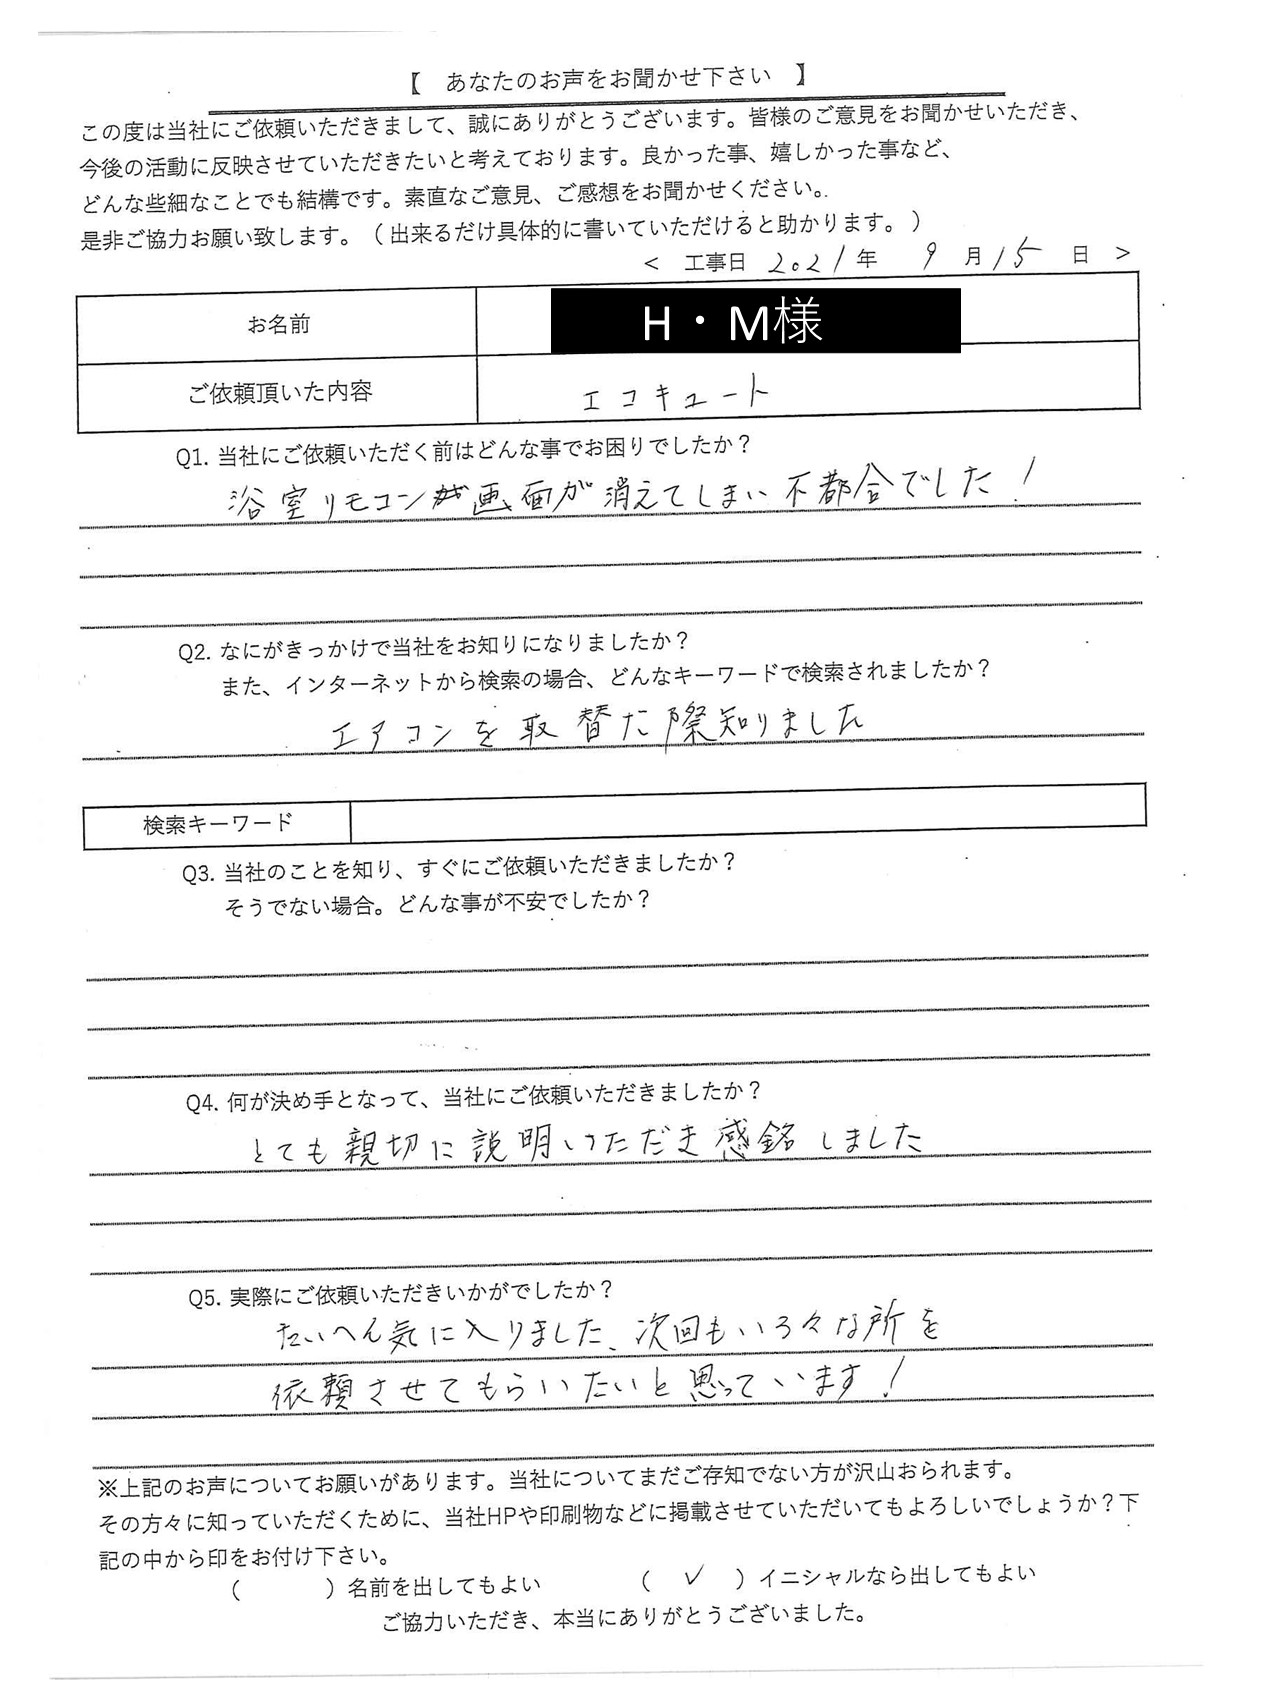 【 あなたのお声をお聞かせ下さい 】
この度は当社にご依頼いただきまして、誠にありがとうございます。皆様のご意見をお聞かせいただき、
今後の活動に反映させていただきたいと考えております。良かった事、嬉しかった事など、
どんな些細なことでも結構です。素直なご意見、ご感想をお聞かせください。
是非ご協力お願い致します。（出来るだけ具体的に書いていただけると助かります。）
＜ 工事日 2021年 9月15日 ＞
お名前 H・M様
ご依頼頂いた内容 エコキュート
Q1. 当社にご依頼いただく前はどんな事でお困りでしたか？
浴室リモコン画面が消えてしまい不都合でした！
Q2. なにがきっかけで当社をお知りになりましたか？
また、インターネットから検索の場合、どんなキーワードで検索されましたか？
エアコンを取替た際知りました
検索キーワード
Q3. 当社のことを知り、すぐにご依頼いただきましたか？
そうでない場合。どんな事が不安でしたか？
Q4. 何が決め手となって、当社にご依頼いただきましたか？
とても親切に説明いただき感銘しました
Q5. 実際にご依頼いただきいかがでしたか？
たいへん気に入りました、次回もいろ々な所を
依頼させてもらいたいと思っています！
※上記のお声についてお願いがあります。当社についてまだご存知でない方が沢山おられます。
その方々に知っていただくために、当社HPや印刷物などに掲載させていただいてもよろしいでしょうか？下
記の中から印をお付け下さい。
（　　）名前を出してもよい （ ✓ ）イニシャルなら出してもよい
ご協力いただき、本当にありがとうございました。